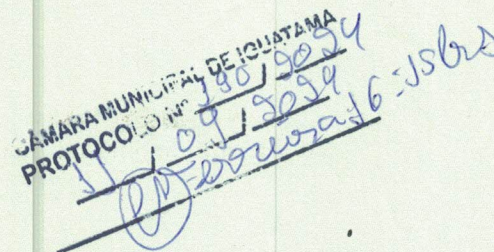 CÂMARA MUNICIPAL DE IGUATAMA
PROTOCOLO Nº 190 / 2024
11 / 09 / 2024
16:15hrs